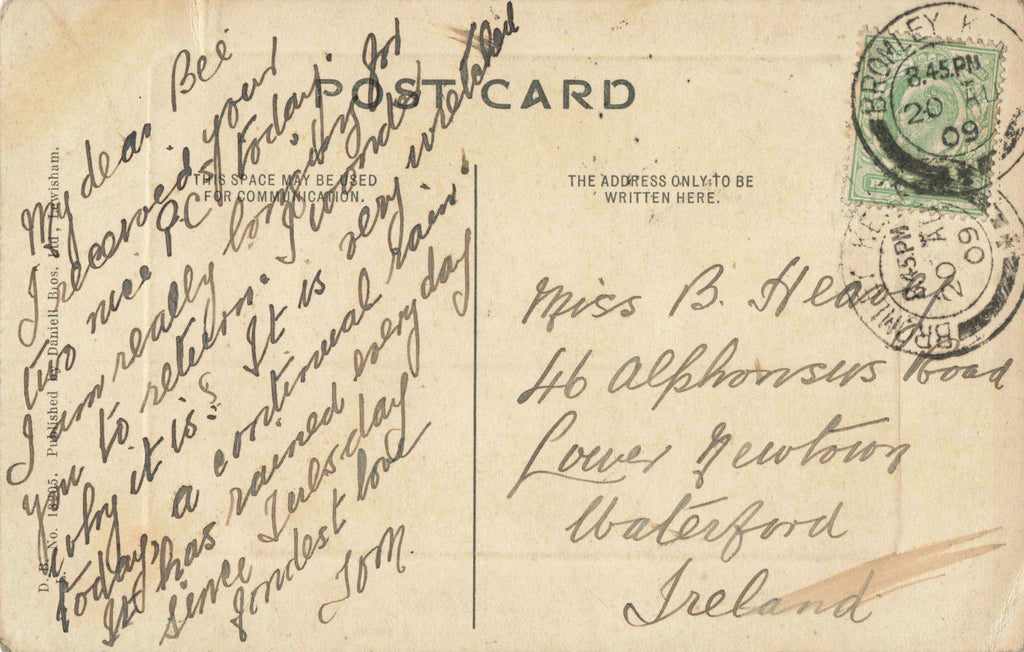 POST CARD
THIS SPACE MAY BE USED
FOR COMMUNICATION.
THE ADDRESS ONLY TO BE
WRITTEN HERE.
My dear Bee
I received your
two nice PC's today.
I am really longing for
you to return. I wonder
why it is? It is very wretched
today, a continual rain.
It has rained every day
since Tuesday
fondest love
Tom
Miss B.
46 Alphonsus Road
Lower Newtown
Waterford
Ireland
BROMLEY
8.45.PM
20 AU
09
BROMLEY
8.45PM
20 AU
09
Published by Daniell Bros. Ltd., Lewisham.